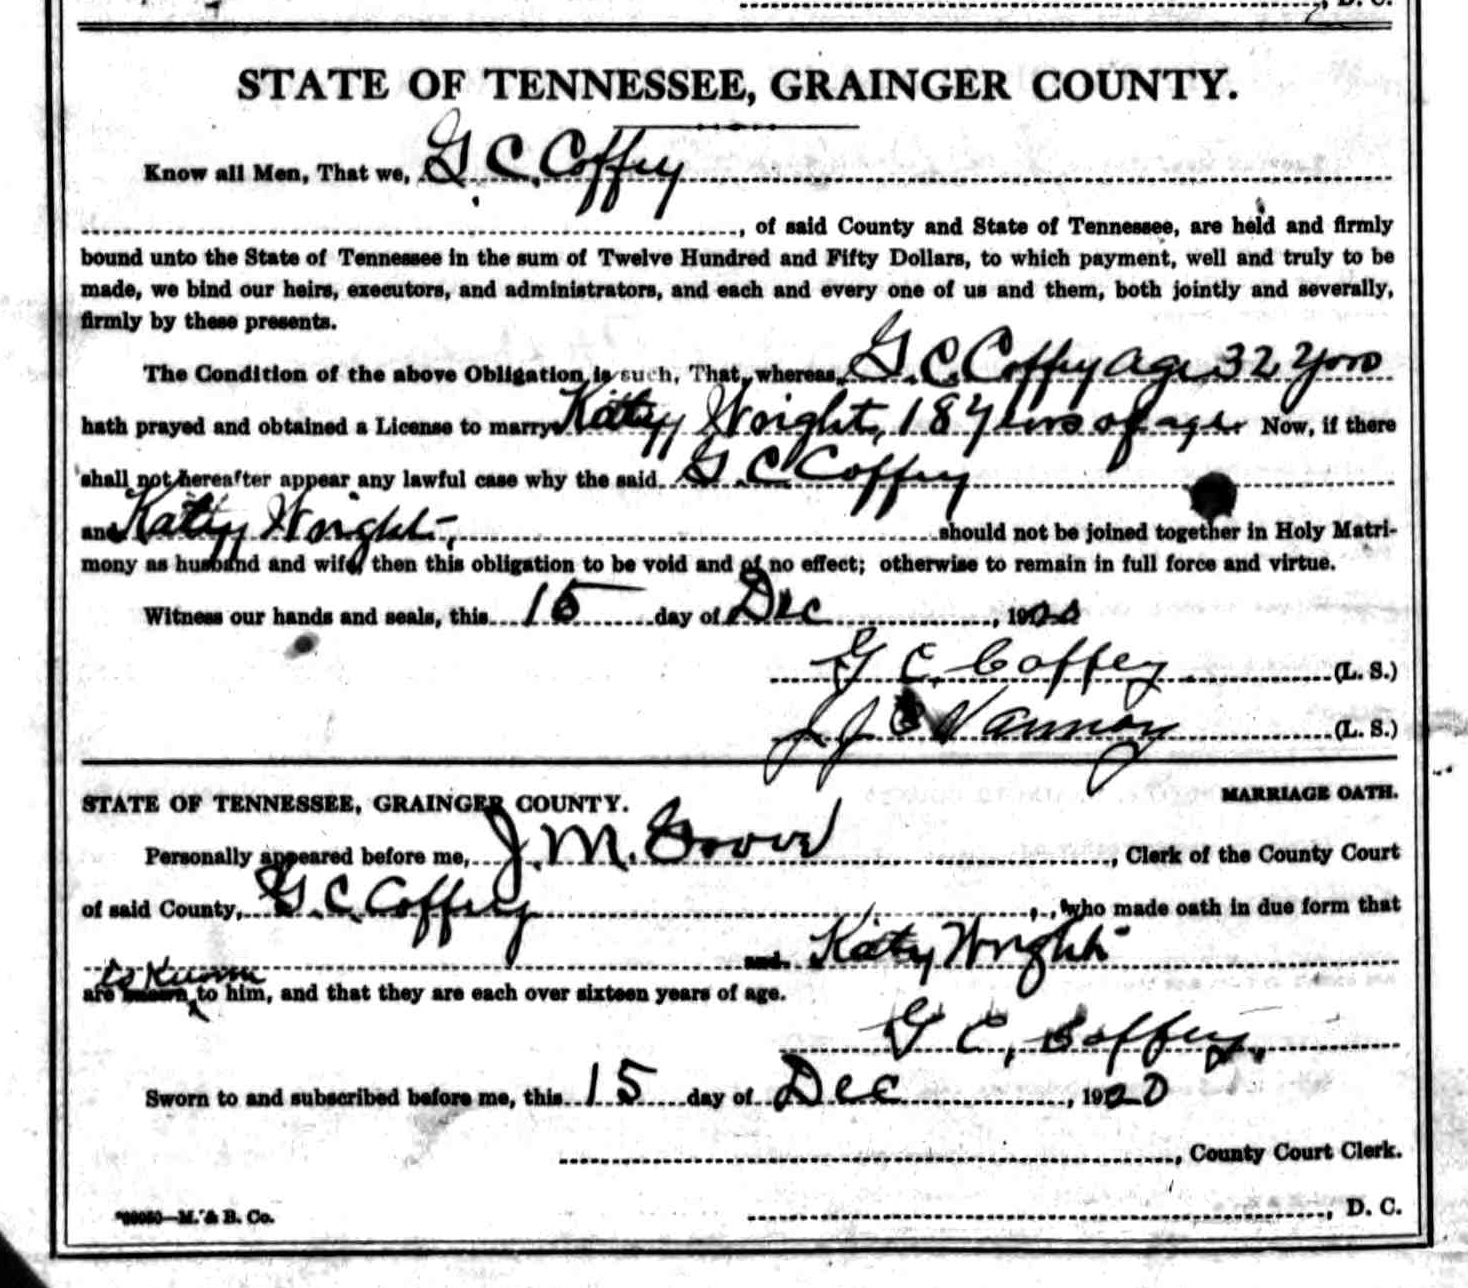 , D. C.
STATE OF TENNESSEE, GRAINGER COUNTY.
Know all Men, That we, G C Coffey
, of said County and State of Tennessee, are held and firmly
bound unto the State of Tennessee in the sum of Twelve Hundred and Fifty Dollars, to which payment, well and truly to be
made, we bind our heirs, executors, and administrators, and each and every one of us and them, both jointly and severally,
firmly by these presents.
The Condition of the above Obligation is such, That, whereas, G. C. Coffey age 32 years
hath prayed and obtained a License to marry Katy Wright, 18 years of age Now, if there
shall not hereafter appear any lawful case why the said G C Coffey
and Katy Wright, should not be joined together in Holy Matri-
mony as husband and wife, then this obligation to be void and of no effect; otherwise to remain in full force and virtue.
Witness our hands and seals, this 15 day of Dec, 1920
G C. Coffey (L. S.)
J J Vannoy (L. S.)
STATE OF TENNESSEE, GRAINGER COUNTY. MARRIAGE OATH.
Personally appeared before me, J. M. , Clerk of the County Court
of said County, G. C. Coffey, who made oath in due form that
and Katy Wright
to him, and that they are each over sixteen years of age.
G C, Coffey.
Sworn to and subscribed before me, this 15 day of Dec, 1920
, County Court Clerk.
—M. & B. Co. , D. C.